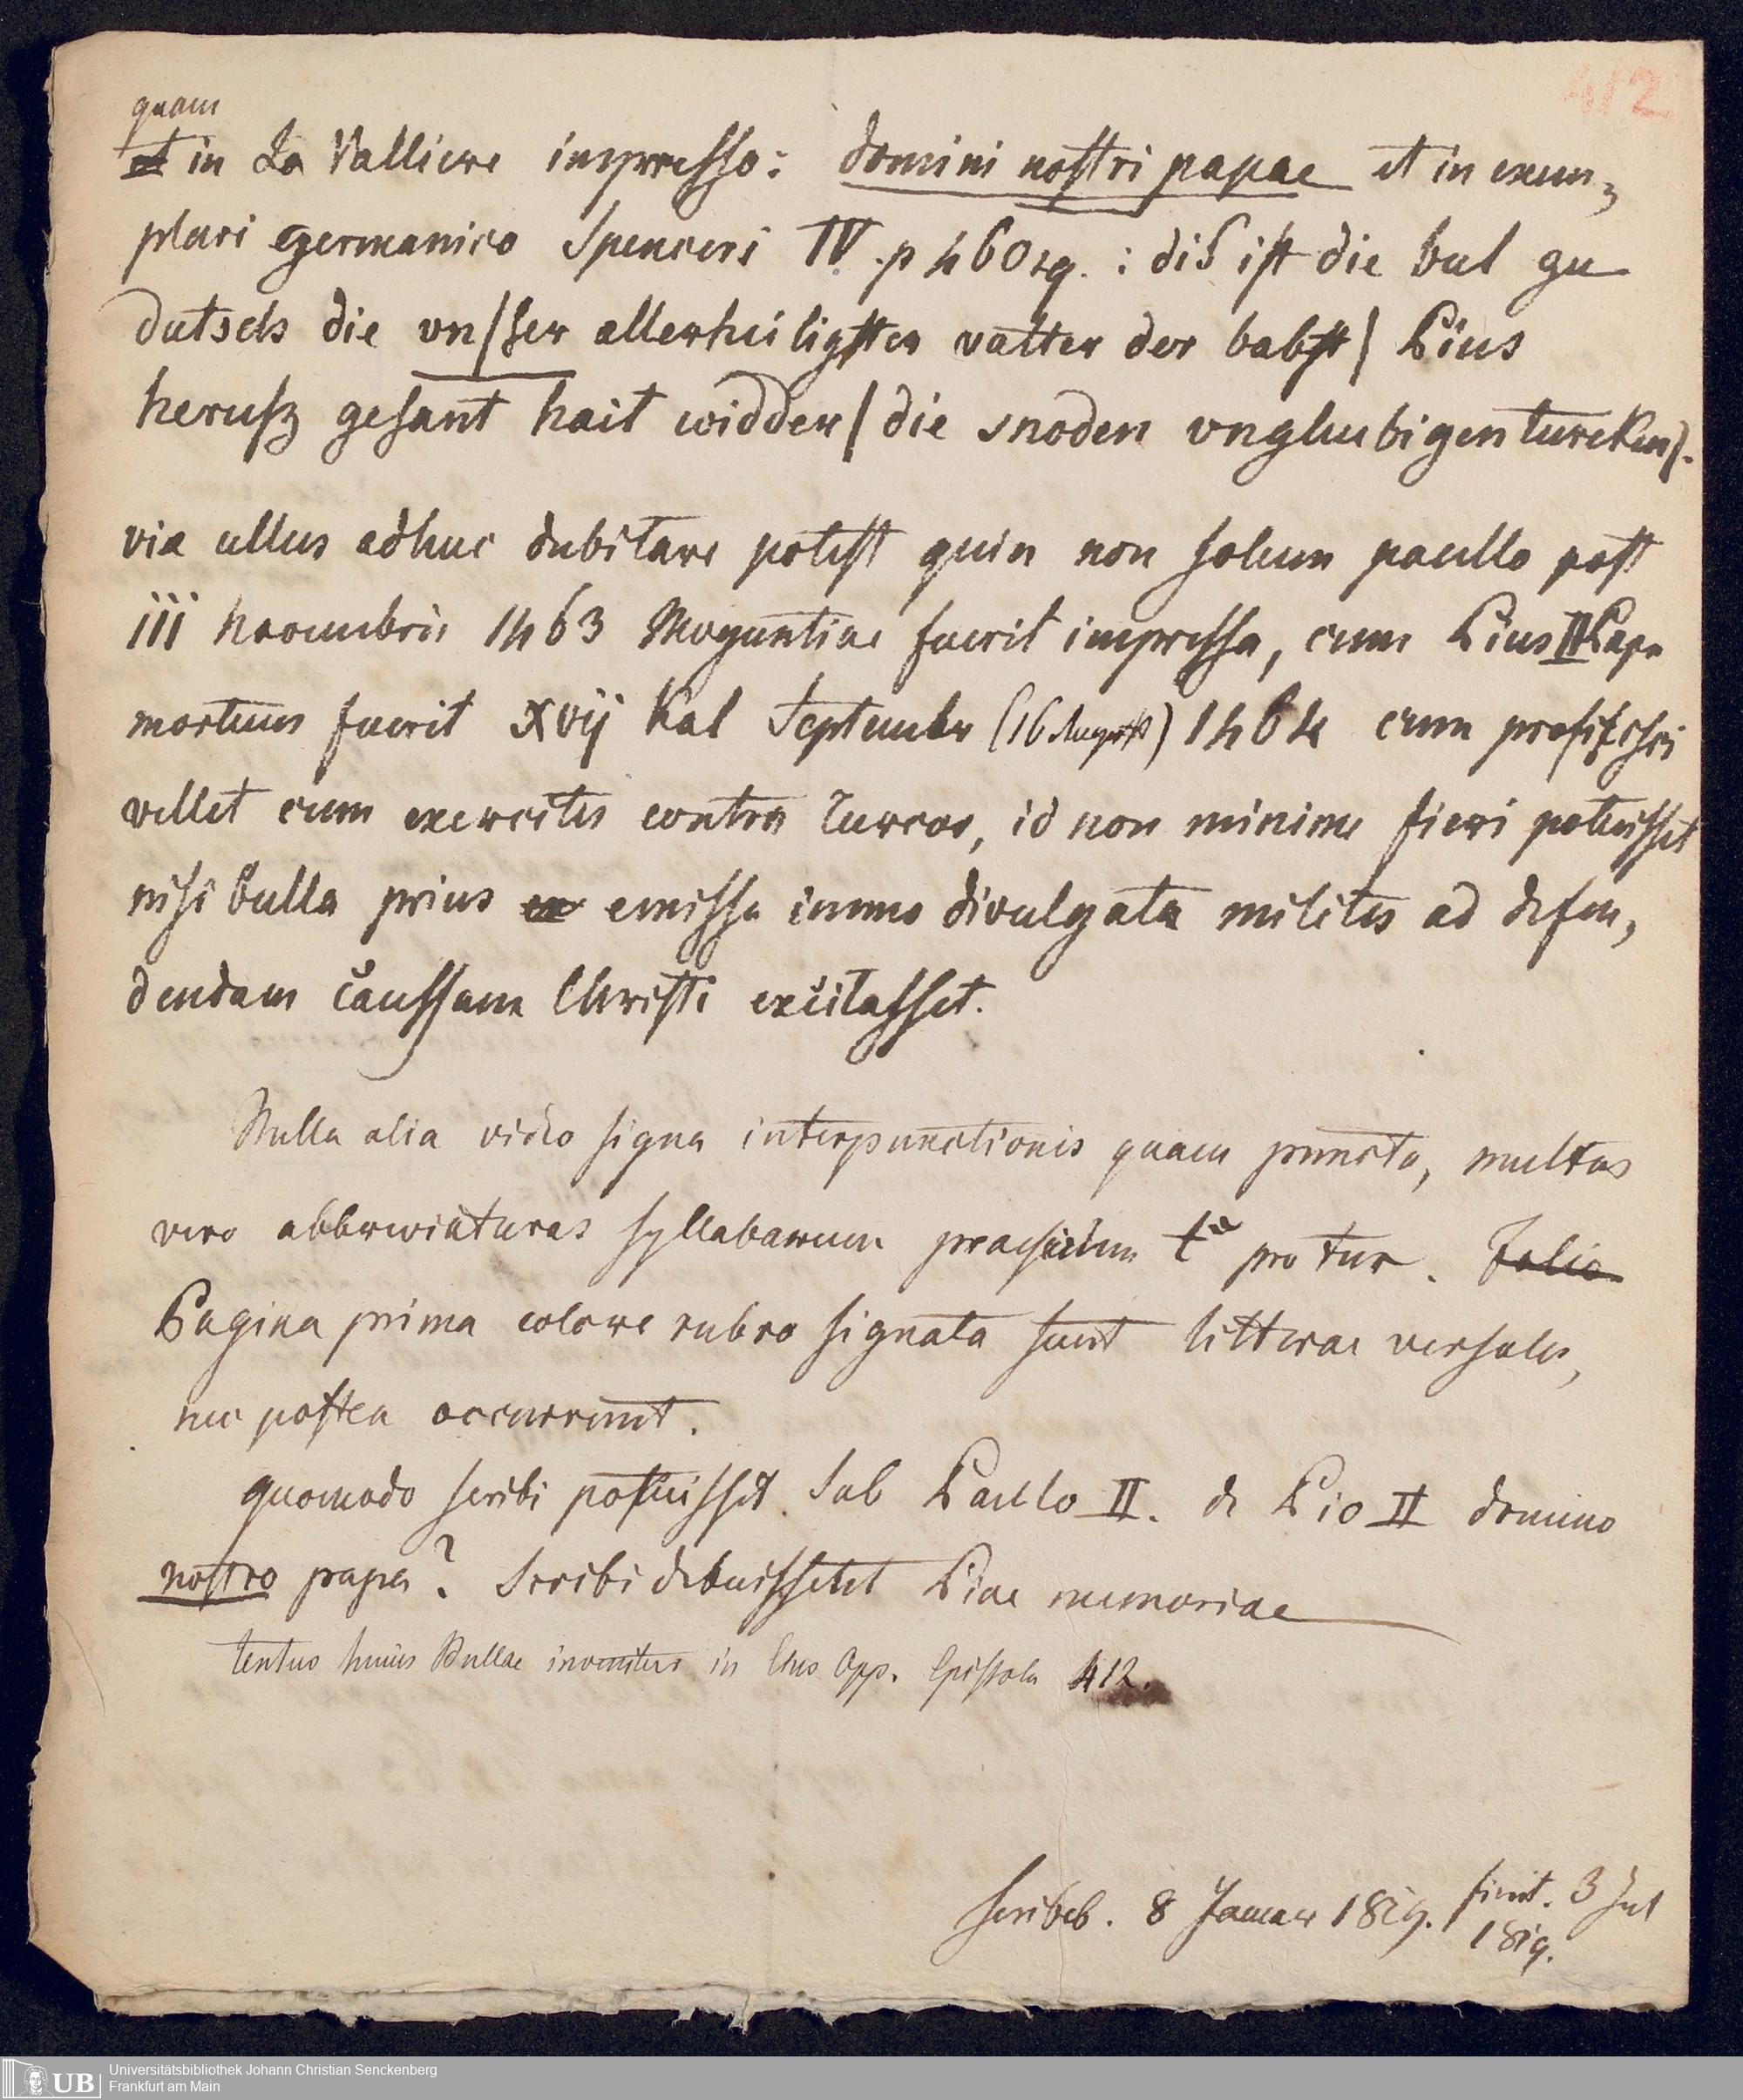 412
quam
et in La Valliere impresso: domini nostri papae et in exem,
plari germanico Spenceri IV. p 460 sq. : diß ist die bul zu
dutsch die vn/ser allerheiligster vatter der babst/ Pius
herusz gesant hait widder/ die snoden vngleubigen turcken).
vix ullus adhuc dubitare potest quin non solum paullo post
iii Novembris 1463 Moguntiae fuerit impressa, cum Pius II Papa
mortuus fuerit xvij Kal Septembr (16 August) 1464 cum proficisci
vellet cum exercitu contra Turcos, id non minime fieri potuisset
nisi bulla prius ex emissa immo divulgata milites ad defen,
dendam caussam Christi excitasset.
Nulla alia video signa interpunctionis quam puncta, multas
vero abbreviaturas syllabarum praesertim t pro tur. Folio
Pagina prima colore rubro signata sunt litterae versales,
nec postea occurrunt.
quomodo scribi potuisset sub Paullo II. de Pio II domino
nostro papa? Scribi debuisset Piae memoriae
textus huius Bullae invenitur in Eius Opp. Epistola 412.
scribeb. 8 Januar 1819. finit. 3 Jul
1819.
UB
Universitätsbibliothek Johann Christian Senckenberg
Frankfurt am Main